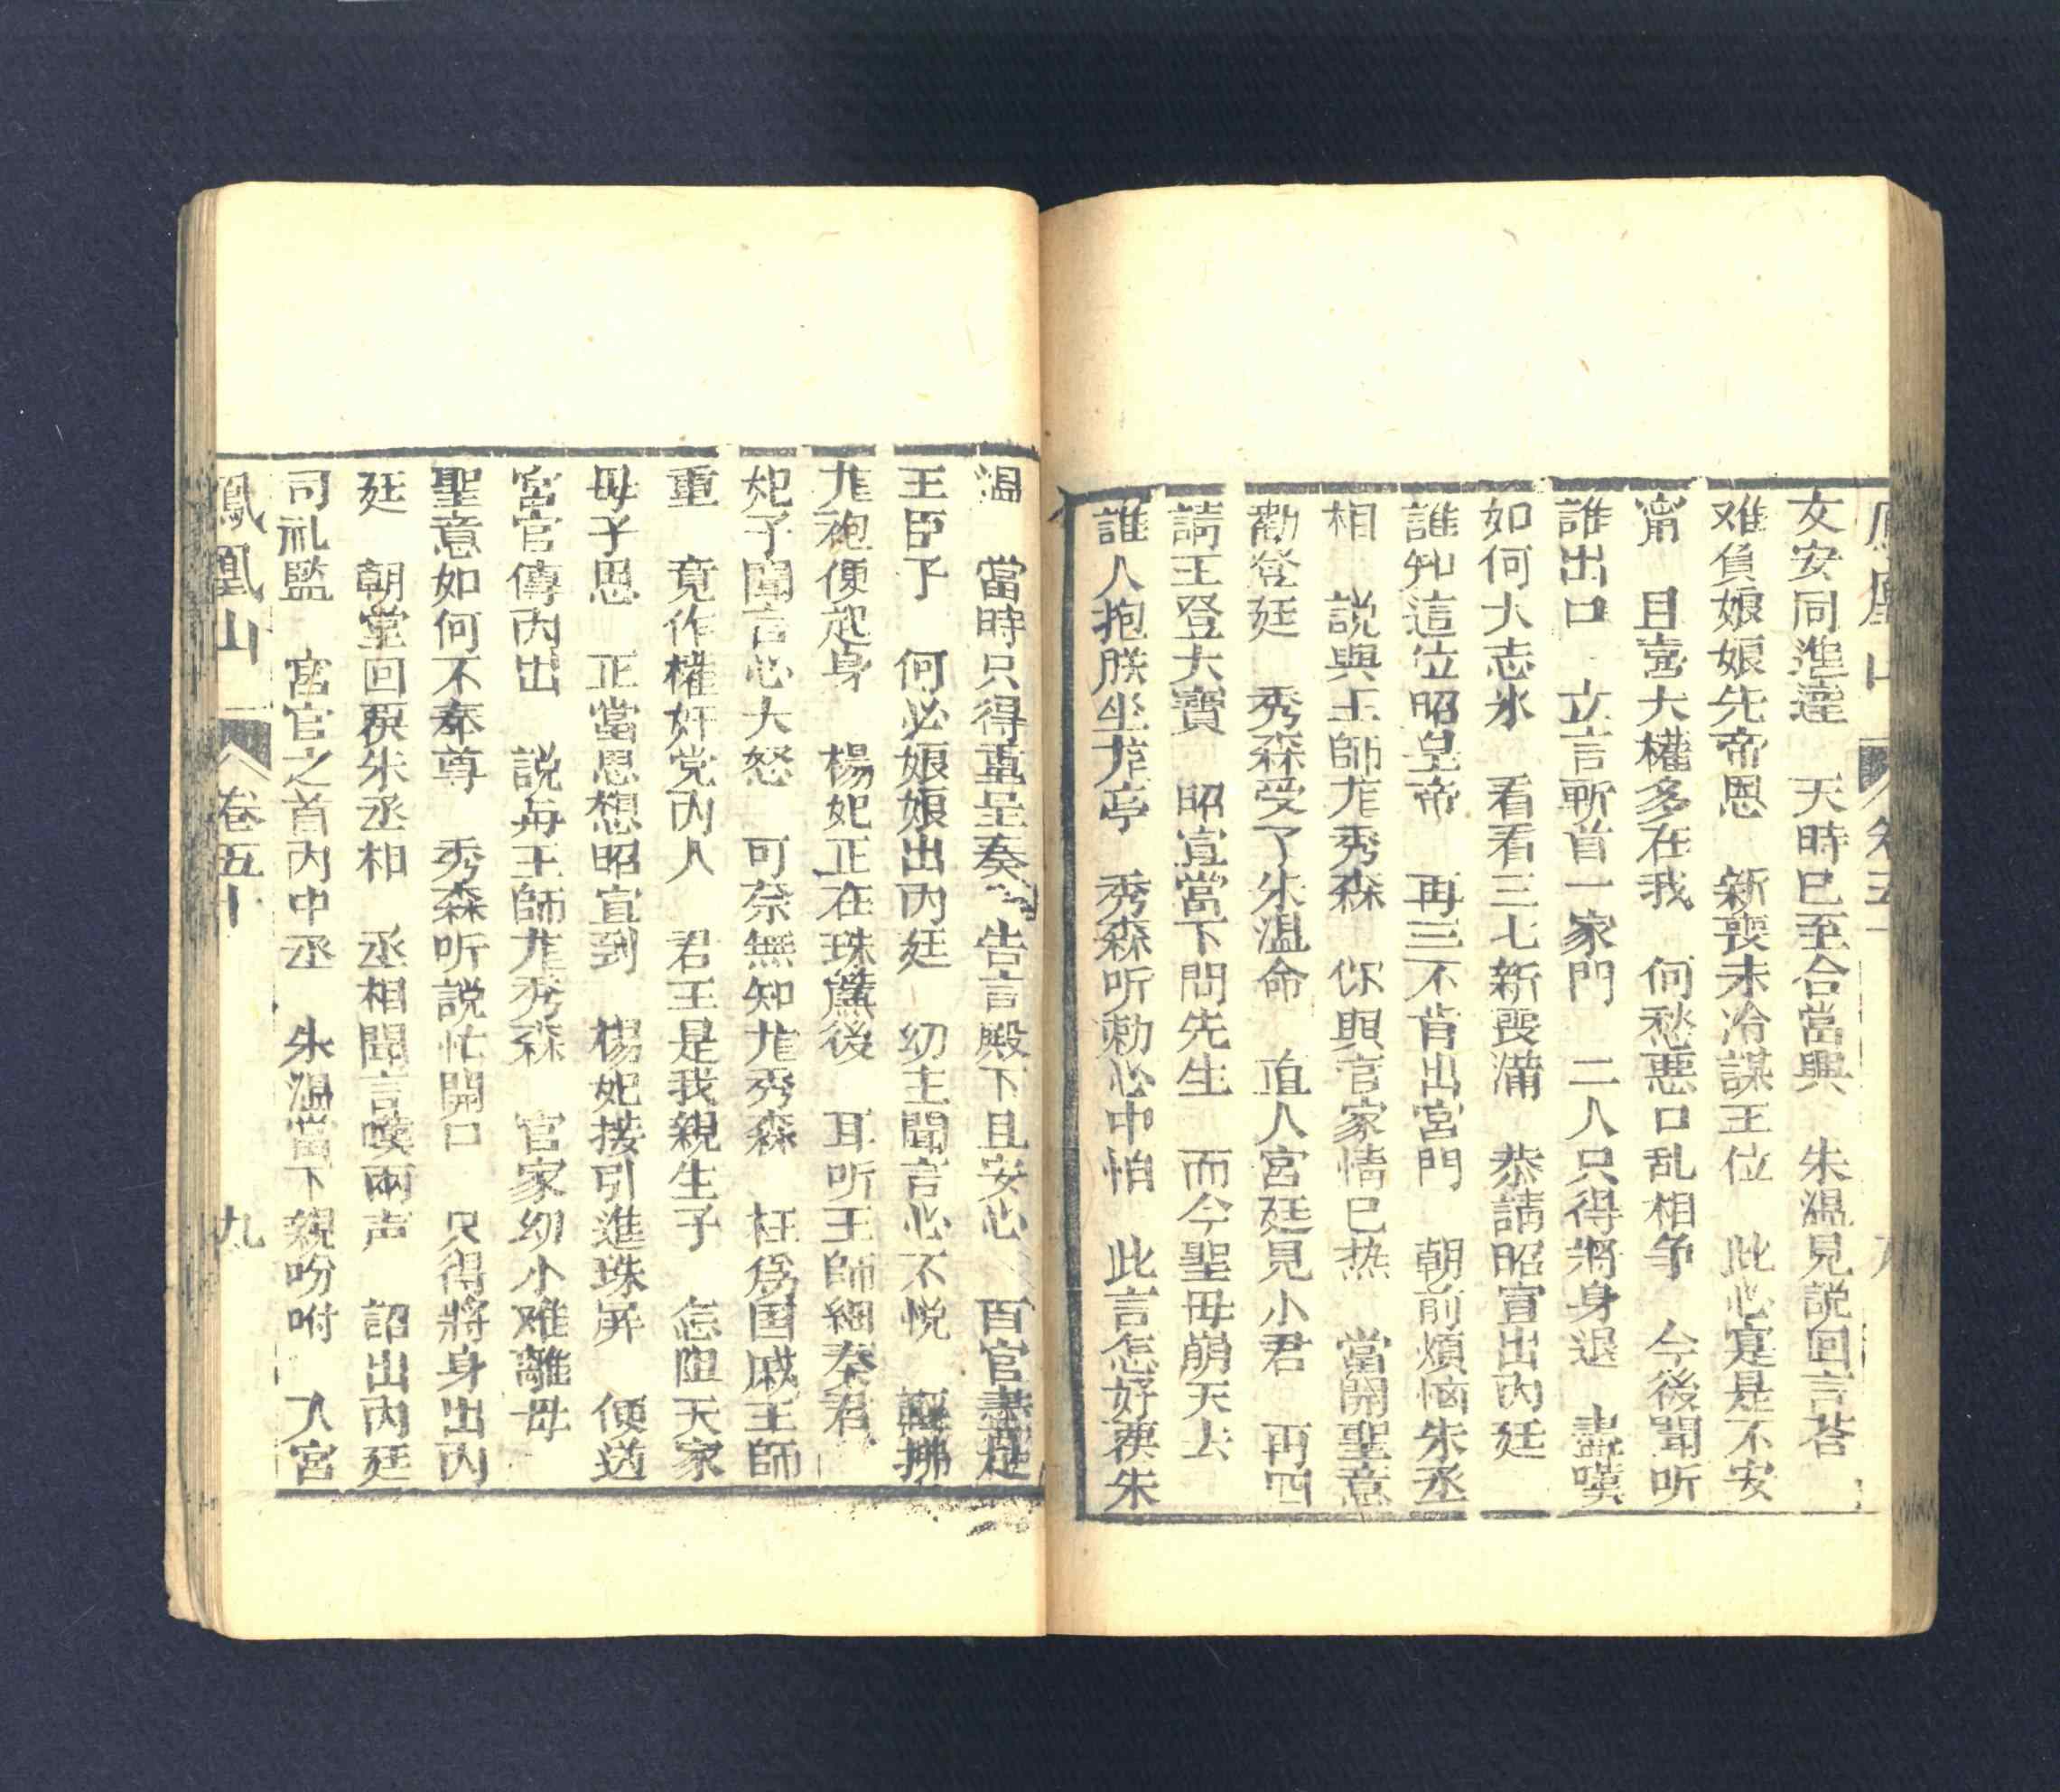 文安同進達　天時已至合當興　朱溫見説囬言答
难負娘娘先帝恩　新喪未冷謀王位　此心寔是不安
甯　且喜大權多在我　何愁悪口乱相争　今後聞听
誰出口　立言斬首一家門　二人只得將身退　盡嘆
如何大志氷　看看三七新喪滿　恭請昭宣出內廷
誰知這位昭皇帝　再三不肯出宮門　朝前煩惱朱丞
相　説與王師尨秀森　你與官家情已热　當開聖意
勸登廷　秀森受了朱溫命　直入宮廷見小君　再四
請王登大寶　昭宣當下問先生　而今聖毋崩天去
誰人抱朕坐尨亭　秀森听勅心中怕　此言怎好禀朱
溫　當時只得重呈奏　告言殿下且安心　百官盡是
王臣子　何必娘娘出內廷　幼主聞言心不悦　輕拂
尨袍便起身　楊妃正在珠簾後　耳听王師細奏君
妃子聞言心大怒　可奈無知尨秀森　枉爲国戚王師
重　竟作權奸党內人　君王是我親生子　怎阻天家
母子思　正當思想昭宣到　楊妃接引進珠屏　便送
宮官傳內出　説與王師尨秀森　官家幼小难離毋
聖意如何不奏尊　秀森听説忙開口　只得將身出內
廷　朝堂回禀朱丞相　丞相聞言嘆兩声　詔出內廷
司礼監　宮官之首內中丞　朱溫當下親吩咐　入宮
鳳凰山　卷五十　九